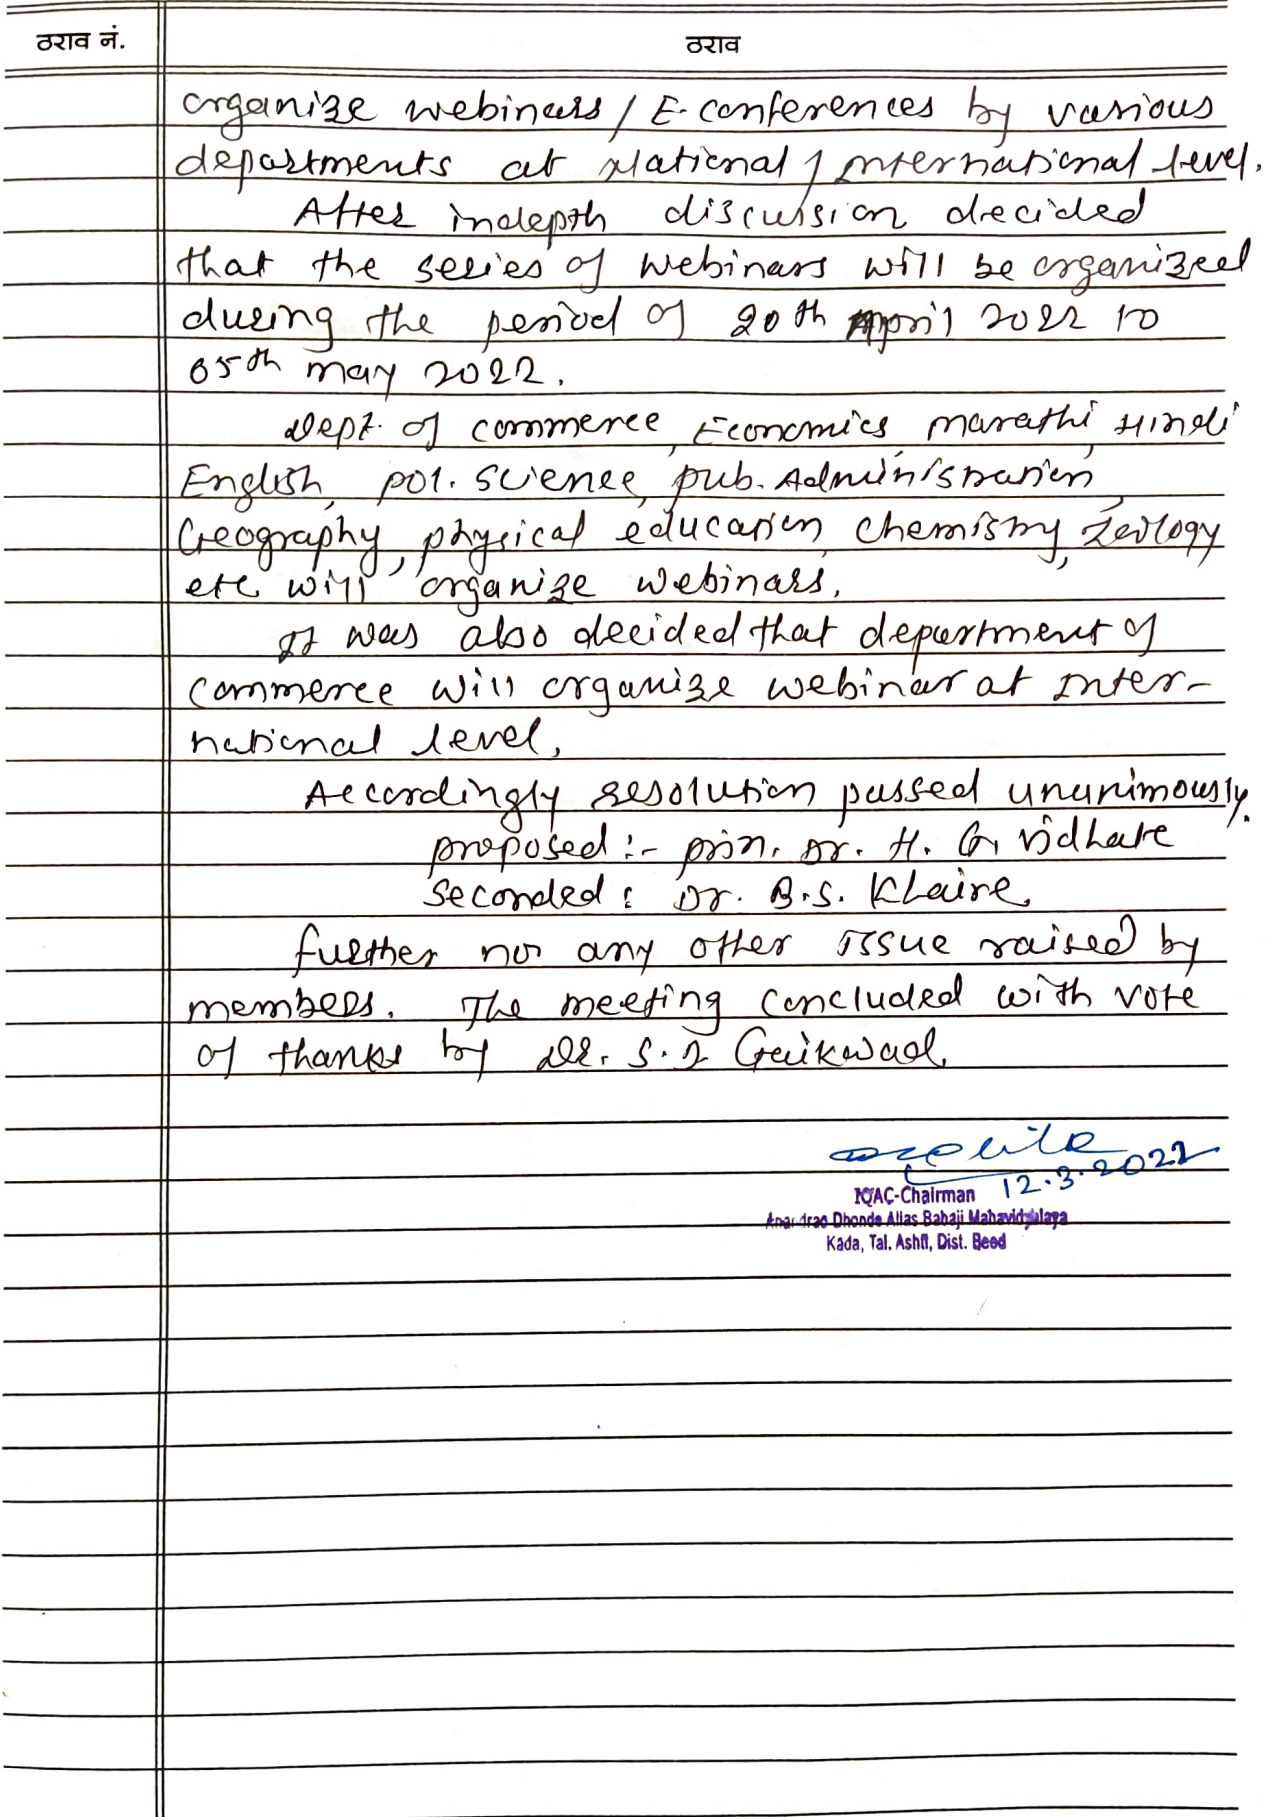 ठराव नं.
ठराव
organize webinars / E-conferences by various
departments at National / International level.
After indepth discussion decided
that the series of webinars will be organized
during the period of 20th April 2022 to
05th may 2022.
Dept. of commerce, Economics, marathi, Hindi
English, pol. science, pub. Administration,
Geography, physical education, chemistry, Zoology
etc will organize webinars.
It was also decided that department of
commerce will organize webinar at Inter-
national level.
Accordingly resolution passed unanimously.
proposed :- prin. Dr. H. G. Vidhate
Seconded : Dr. B.S. Khaire
further no any other issue raised by
members. The meeting concluded with vote
of thanks by Dr. S. I Gaikwad
12.3.2022
IQAC-Chairman
Anandrao Dhonde Alias Babaji Mahavidyalaya
Kada, Tal. Ashti, Dist. Beed